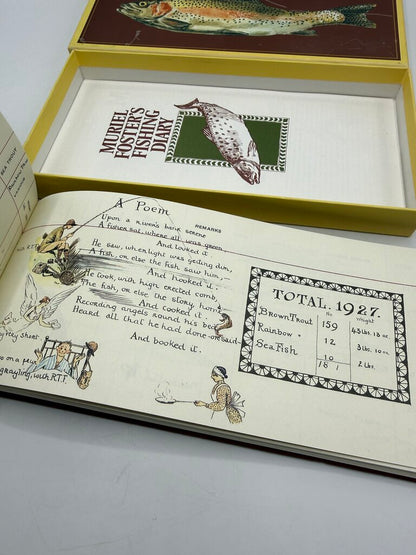 MURIEL
FOSTER'S
FISHING
DIARY
SEA TROUT
A Poem
REMARKS
Upon a river's bank serene
A fisher sat, where all was green
And looked it.
He saw, when light was getting dim,
A fish, or else the fish saw him,
And hooked it.
He took, with high erected comb,
The fish, or else the story, home,
And cooked it.
Recording angels round his bed
Heard all that he had done or said
And booked it.
grayling, with R.T.F.
TOTAL. 1927.
No Weight
Brown Trout 159
Rainbow " 12
Sea Fish 10 2 lbs.
181